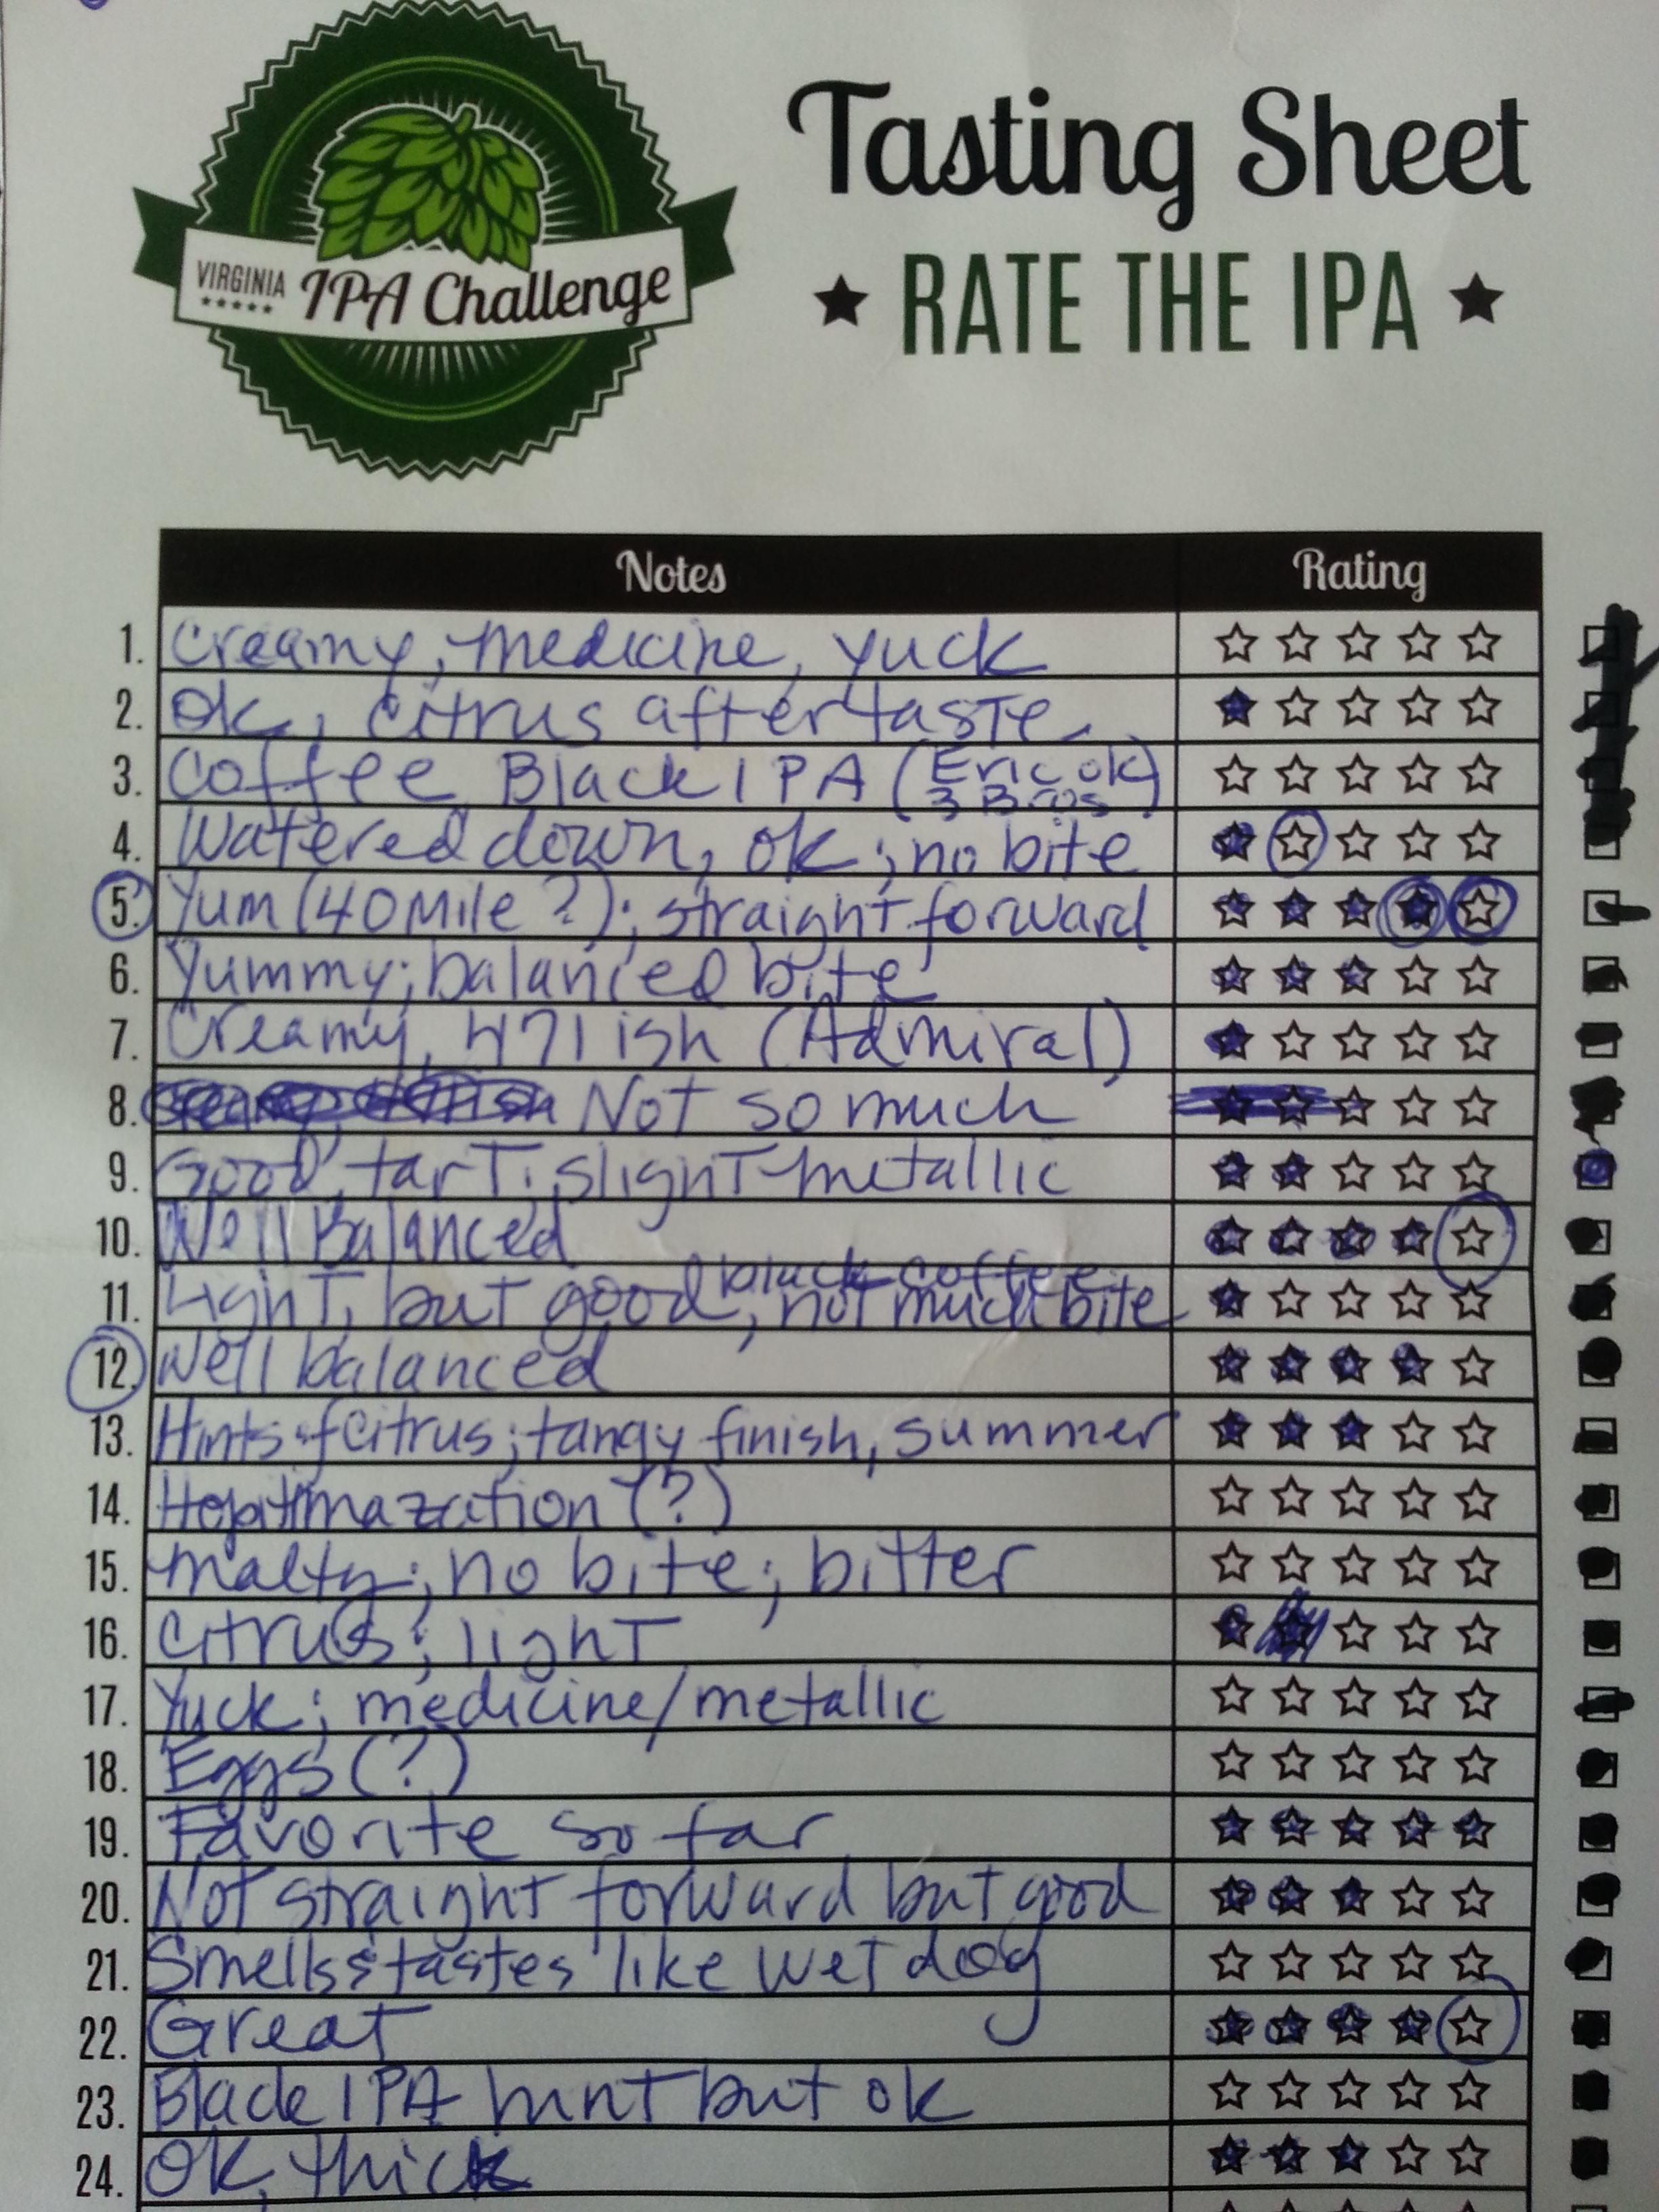 VIRGINIA IPA Challenge
Tasting Sheet
RATE THE IPA
Notes Rating
1. Creamy, medicine, yuck
2. Ok, citrus aftertaste
3. Coffee Black IPA (Eric ok)
3 Bros
4. Watered down, ok; no bite
5. Yum (40 Mile ?); straight forward
6. Yummy; balanced bite
7. Creamy, 471 ish (Admiral)
8. Not so much
9. Good, tart; slight metallic
10. Well Balanced
black coffee
11. Light, but good, not much bite
12. Well balanced
13. Hints of citrus; tangy finish, summer
14. (?)
15. Malty; no bite; bitter
16. Citrus; light
17. Yuck; medicine/metallic
18. Eggs (?)
19. Favorite so far
20. Not straight forward but good
21. Smells & tastes like wet dog
22. Great
23. Black IPA hint but ok
24. OK, thick